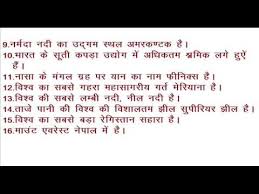 9.नर्मदा नदी का उद्गम स्थल अमरकण्टक है।
10.भारत के सूती कपड़ा उद्योग में अधिकतम श्रमिक लगे हुऐं
हैं।
11.नासा के मंगल ग्रह पर यान का नाम फीनिक्स है।
12.विश्व का सबसे गहरा महासागरीय गर्त मेरियाना है।
13.विश्व की सबसे लम्बी नदी, नील नदी है।
14.ताजे पानी की विश्व की विशालतम झील सुपीरियर झील है।
15.विश्व का सबसे बड़ा रेगिस्तान सहारा है।
16.माउंट एवरेस्ट नेपाल में है।